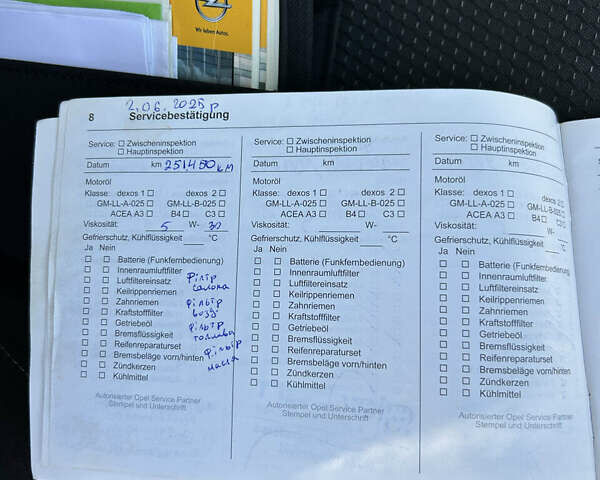 Wir leben Autos.
8
2.06.2025р
Servicebestätigung
Service: Zwischeninspektion
Hauptinspektion
Datum km 251450 км
Motoröl
Klasse: dexos 1 dexos 2
GM-LL-A-025 GM-LL-B-025
ACEA A3 B4 C3
Viskosität: 5 W- 30
Gefrierschutz, Kühlflüssigkeit °C
Ja Nein
Batterie (Funkfernbedienung)
Innenraumluftfilter
Luftfiltereinsatz
Keilrippenriemen
Zahnriemen
Kraftstofffilter
Getriebeöl
Bremsflüssigkeit
Reifenreparaturset
Bremsbeläge vorn/hinten
Zündkerzen
Kühlmittel
фільтр
салона
фільтр
возд
фільтр
топлива
фільтр
масла
Autorisierter Opel Service Partner
Stempel und Unterschrift
Service: Zwischeninspektion
Hauptinspektion
Datum km
Motoröl
Klasse: dexos 1 dexos 2
GM-LL-A-025 GM-LL-B-025
ACEA A3 B4 C3
Viskosität: W-
Gefrierschutz, Kühlflüssigkeit °C
Ja Nein
Batterie (Funkfernbedienung)
Innenraumluftfilter
Luftfiltereinsatz
Keilrippenriemen
Zahnriemen
Kraftstofffilter
Getriebeöl
Bremsflüssigkeit
Reifenreparaturset
Bremsbeläge vorn/hinten
Zündkerzen
Kühlmittel
Autorisierter Opel Service Partner
Stempel und Unterschrift
Service: Zwischeninspektion
Hauptinspektion
Datum km
Motoröl
Klasse: dexos 1 dexos 2
GM-LL-A-025 GM-LL-B-025
ACEA A3 B4 C3
Viskosität: W-
Gefrierschutz, Kühlflüssigkeit °C
Ja Nein
Batterie (Funkfernbedienung)
Innenraumluftfilter
Luftfiltereinsatz
Keilrippenriemen
Zahnriemen
Kraftstofffilter
Getriebeöl
Bremsflüssigkeit
Reifenreparaturset
Bremsbeläge vorn/hinten
Zündkerzen
Kühlmittel
Autorisierter Opel Service Partner
Stempel und Unterschrift